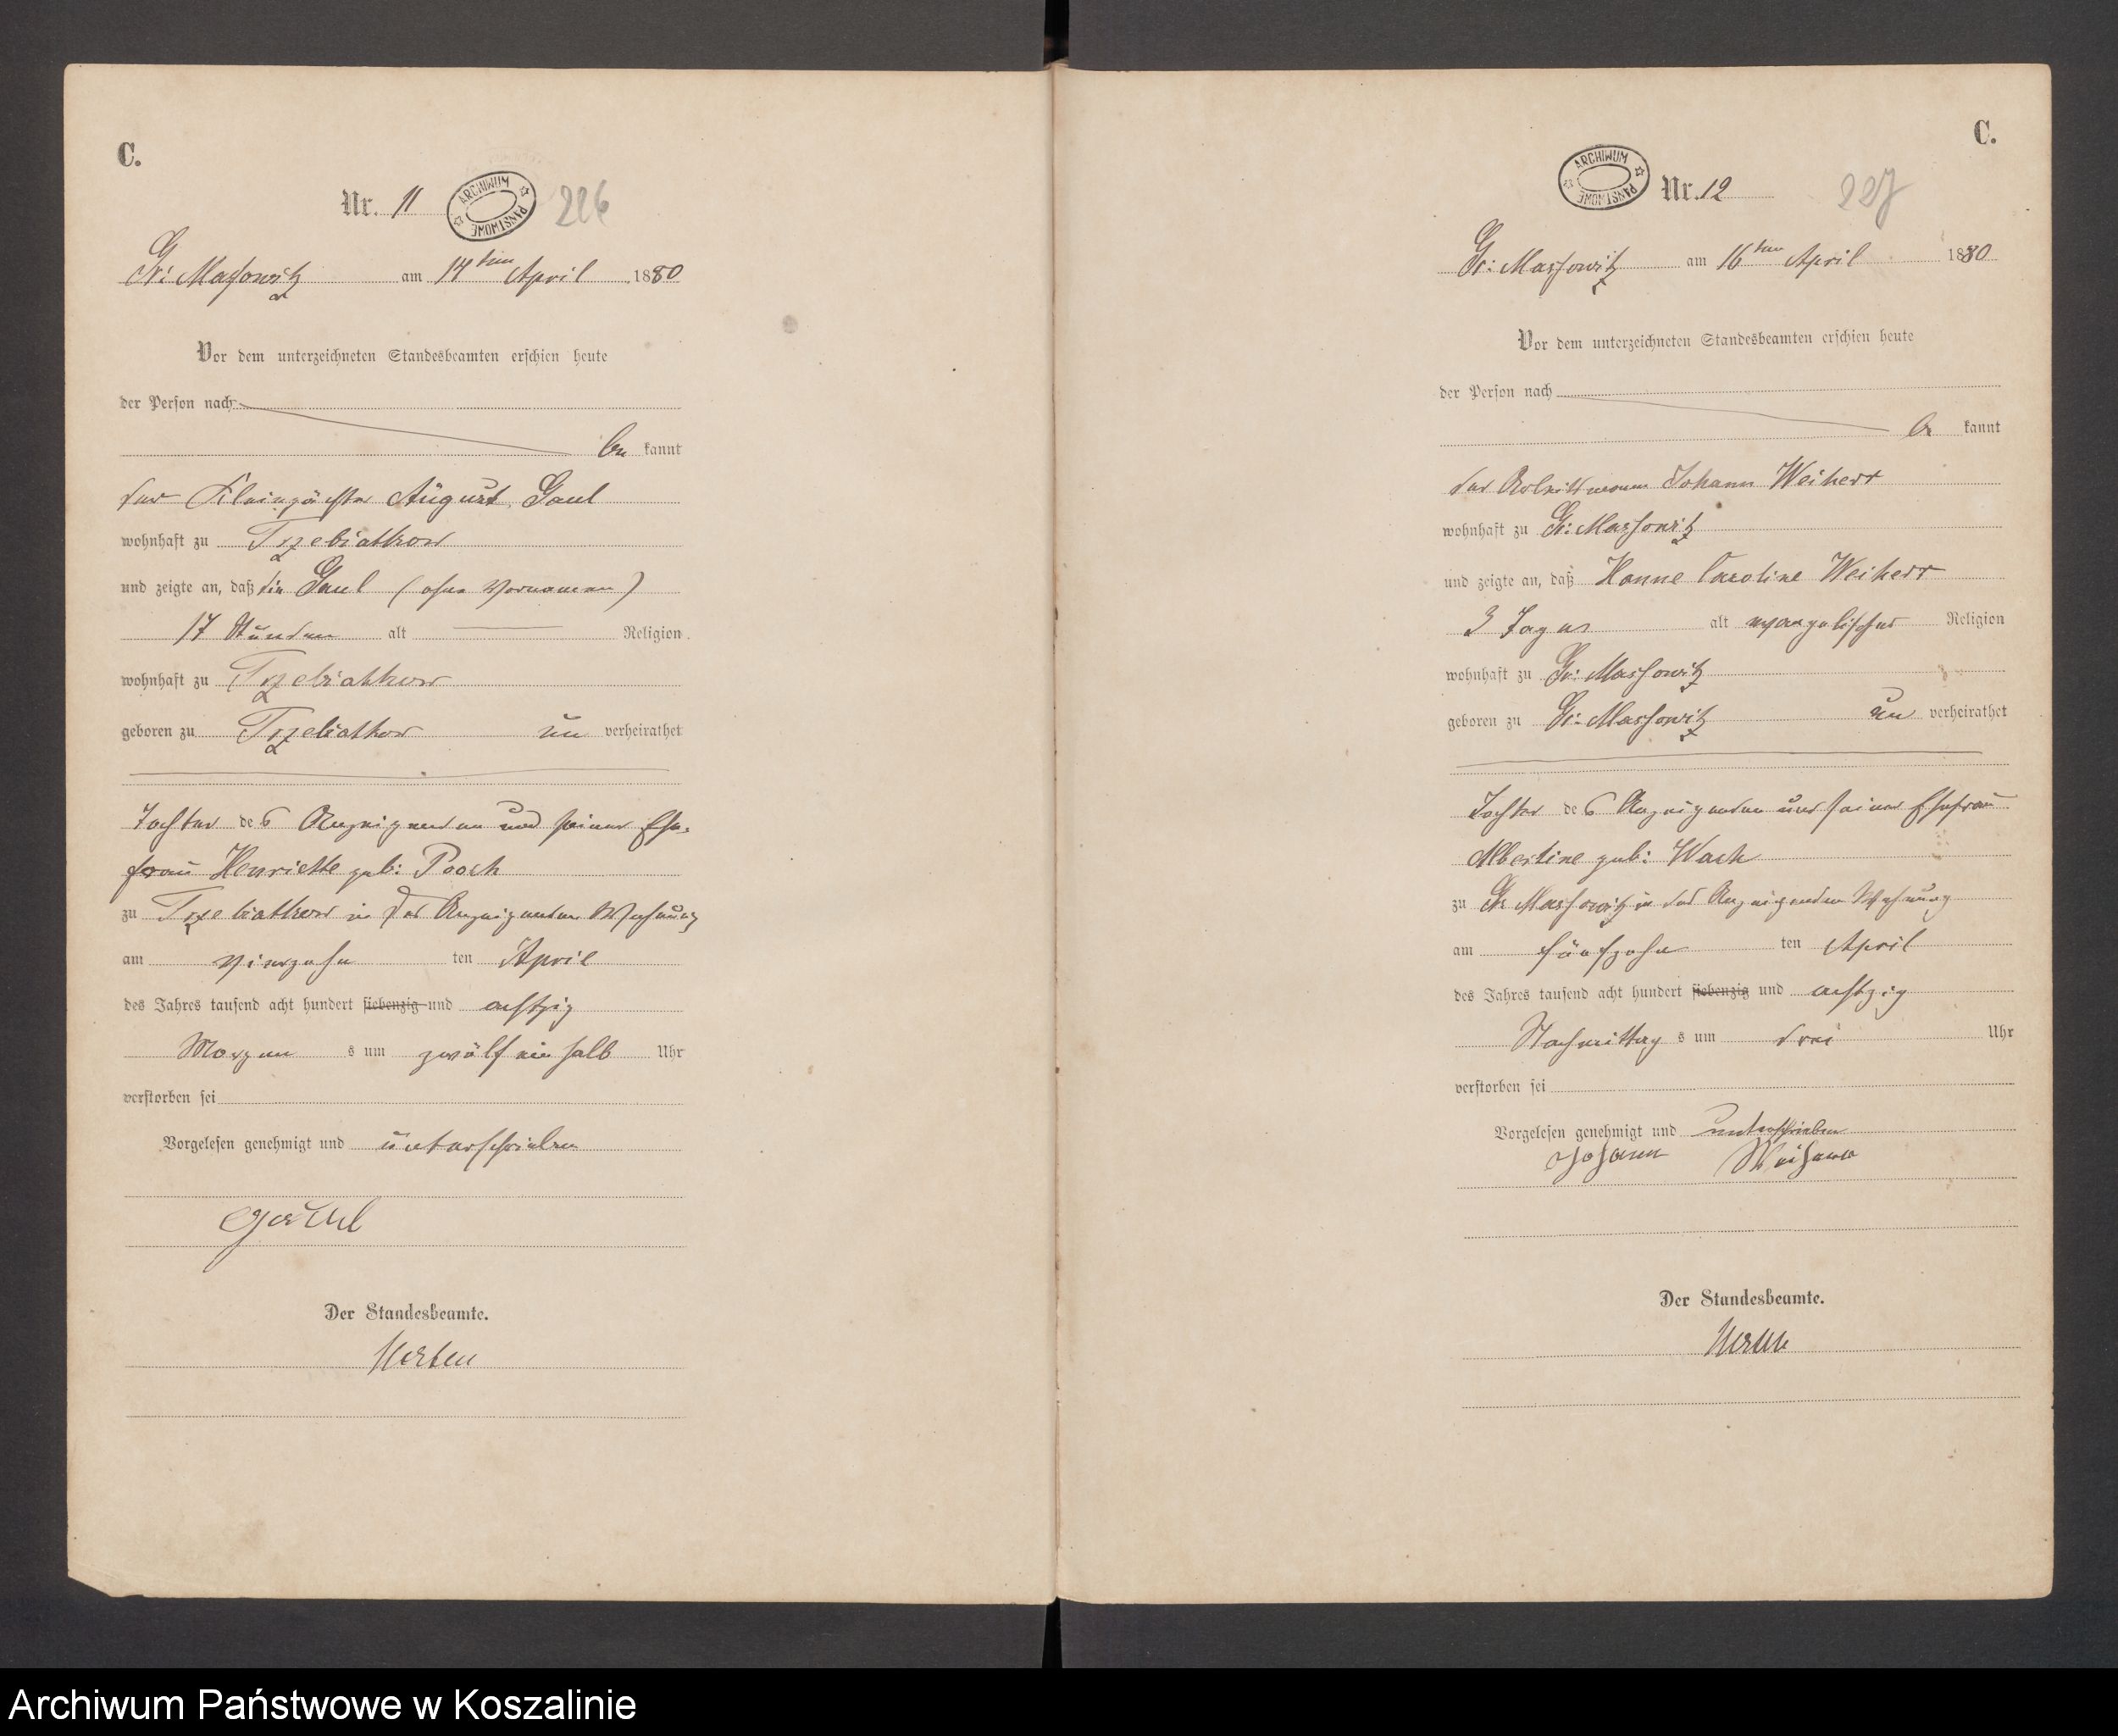 C.
Nr. 11
ARCHIWUM PAŃSTWOWE
226
Gr: Massowitz am 14ten April 1880
Vor dem unterzeichneten Standesbeamten erschien heute
der Person nach
be kannt
der Kleinpächter August Gaul
wohnhaft zu Trzebiatkow
und zeigte an, daß die Gaul (ohne Vornamen)
17 Stunden alt Religion
wohnhaft zu Trzebiatkow
geboren zu Trzebiatkow un verheirathet
Tochter des Anzeigenden und seiner Ehe-
frau Henriette geb: Poosch
zu Trzebiatkow in des Anzeigenden Wohnung
am vierzehn ten April
des Jahres tausend acht hundert siebenzig und achtzig
Morgen s um zwölf ein halb Uhr
verstorben sei
Vorgelesen genehmigt und unterschrieben
Gaul
Der Standesbeamte.
C.
ARCHIWUM PAŃSTWOWE
Nr. 12
227
Gr: Massowitz am 16ten April 1880
Vor dem unterzeichneten Standesbeamten erschien heute
der Person nach
be kannt
der Arbeitsmann Johann Weiherr
wohnhaft zu Gr: Massowitz
und zeigte an, daß Hanne Caroline Weiherr
3 Tage alt evangelischer Religion
wohnhaft zu Gr: Massowitz
geboren zu Gr: Massowitz un verheirathet
Tochter des Anzeigenden und seiner Ehefrau
Albertine geb: Wach
zu Gr Massowitz in des Anzeigenden Wohnung
am fünfzehn ten April
des Jahres tausend acht hundert siebenzig und achtzig
Nachmittag s um drei Uhr
verstorben sei
Vorgelesen genehmigt und unterschrieben
Johann
Der Standesbeamte.
Archiwum Państwowe w Koszalinie